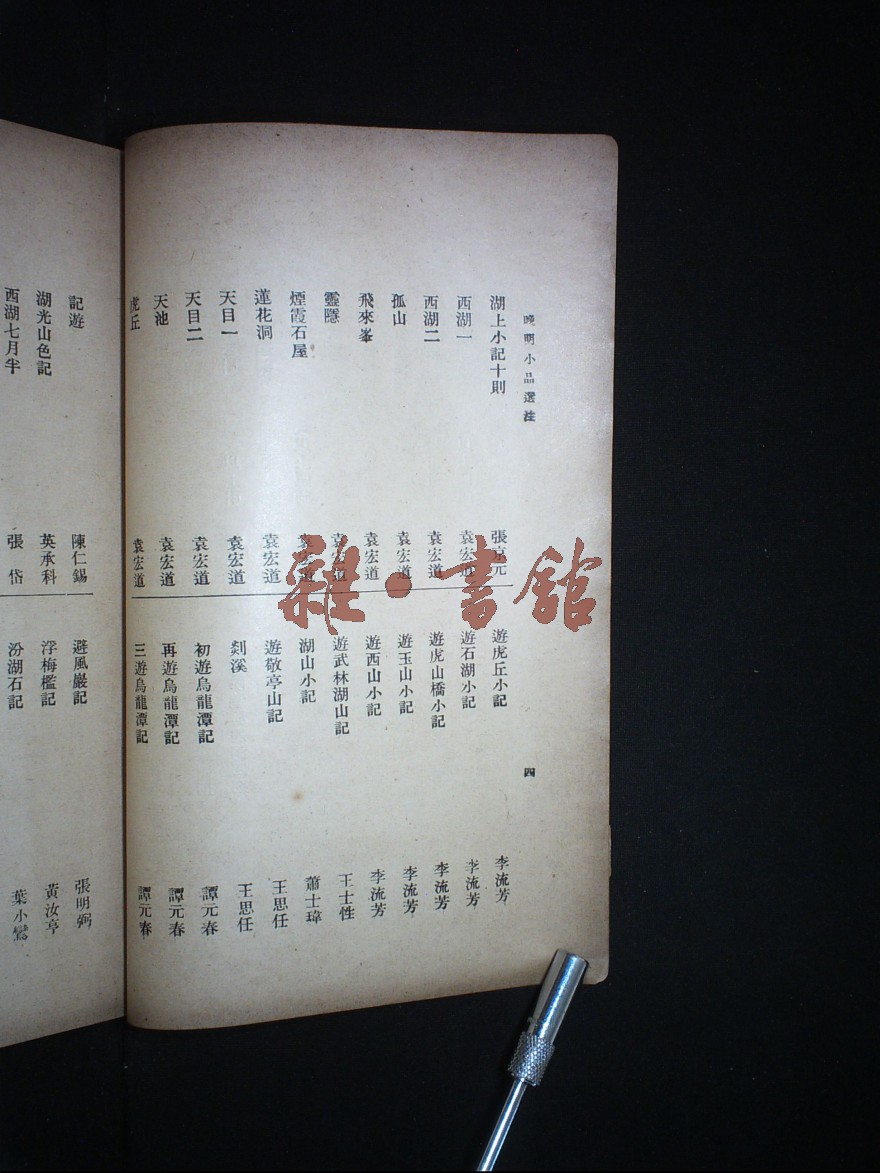 晚明小品選註
四
湖上小記十則 張京元
西湖一 袁宏道
西湖二 袁宏道
孤山 袁宏道
飛來峯 袁宏道
靈隱 袁宏道
煙霞石屋 袁宏道
蓮花洞 袁宏道
天目一 袁宏道
天目二 袁宏道
天池 袁宏道
虎丘 袁宏道
遊虎丘小記 李流芳
遊石湖小記 李流芳
遊虎山橋小記 李流芳
遊玉山小記 李流芳
遊西山小記 李流芳
遊武林湖山記 王士性
湖山小記 蕭士瑋
遊敬亭山記 王思任
剡溪 王思任
初遊烏龍潭記 譚元春
再遊烏龍潭記 譚元春
三遊烏龍潭記 譚元春
記遊 陳仁錫
湖光山色記 英承科
西湖七月半 張岱
避風巖記 張明弼
浮梅檻記 黃汝亭
汾湖石記 葉小鸞
雜·書館